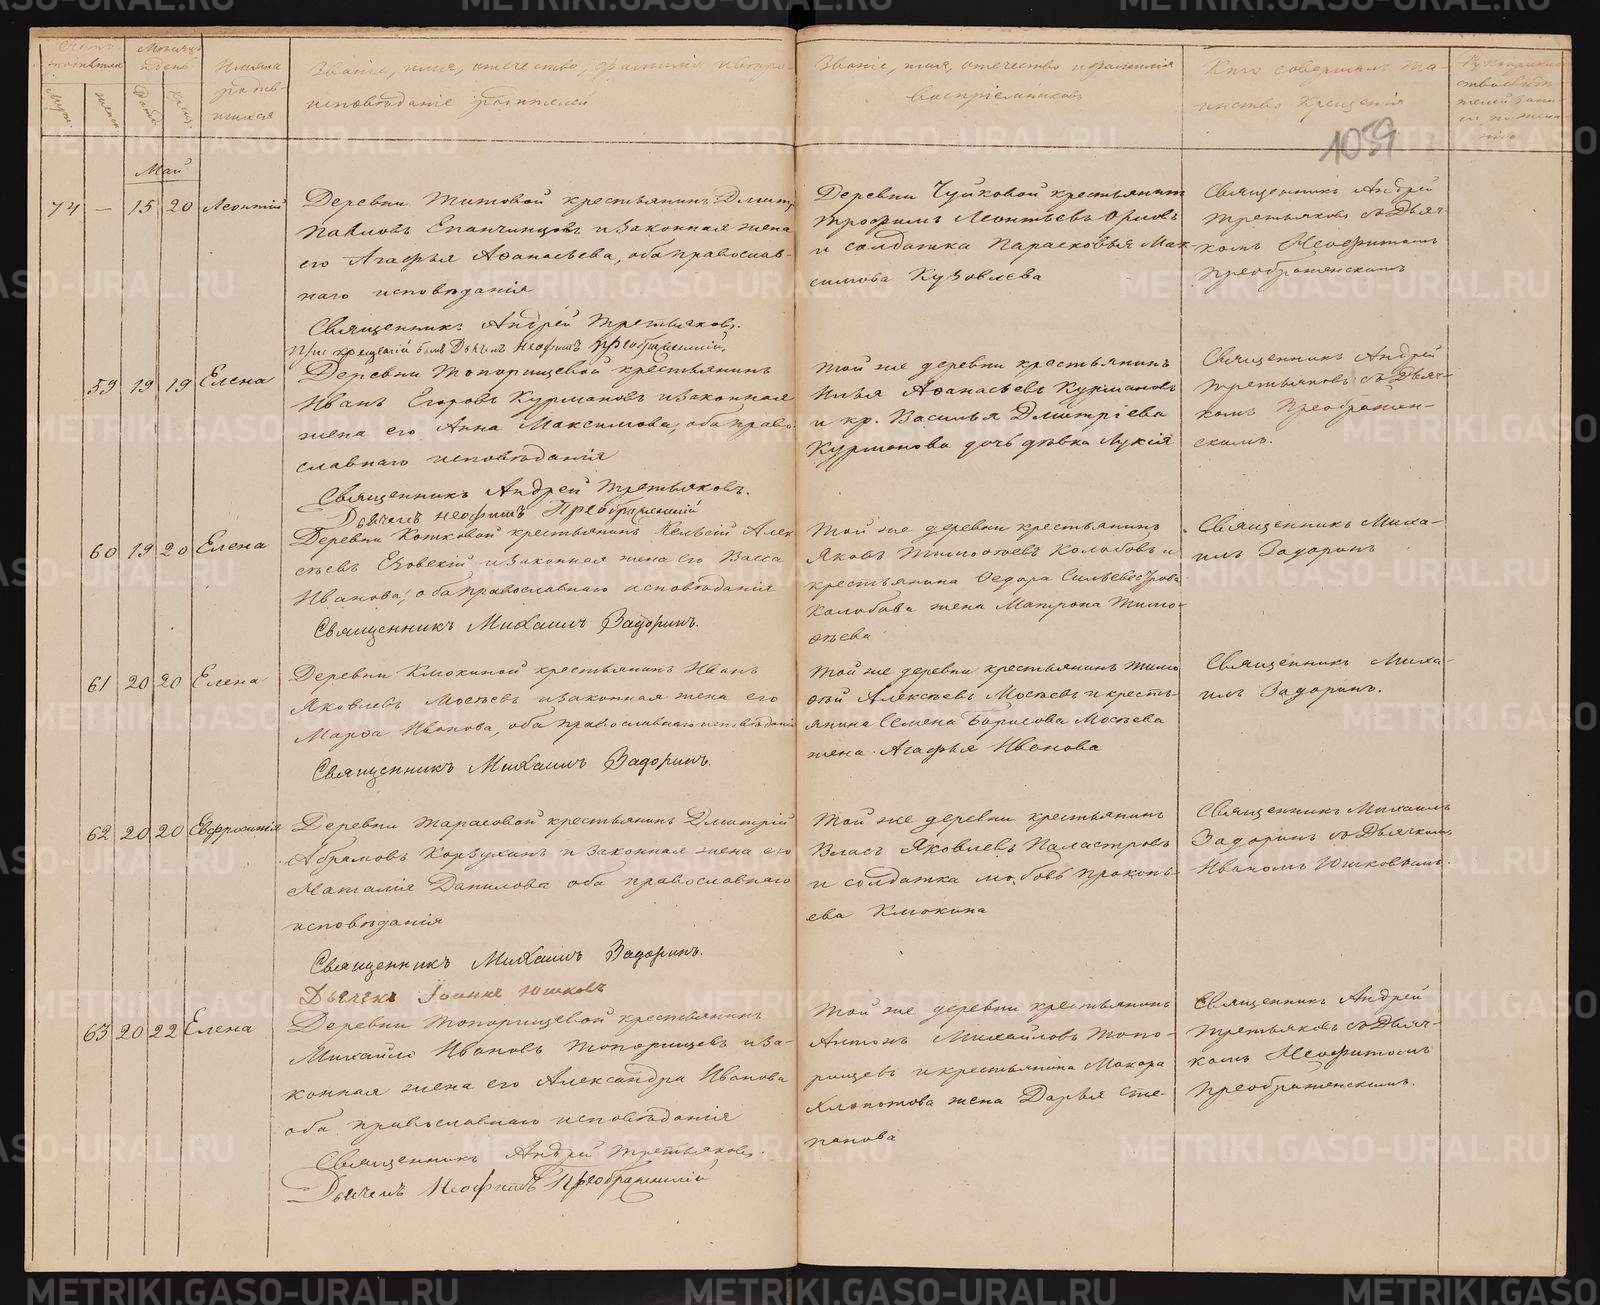 Счетъ родившихся
Мужес. женск.
Мѣсяцъ и день
Рожд. Крещ.
Имена родившихся
Званіе, имя, отчество, фамилія и вѣроисповѣданіе родителей
Званіе, имя, отчество и фамилія воспріемниковъ
Кто совершалъ таинство крещенія
1039
Май
74 — 15 20 Леонтій
Деревни Титовой крестьянинъ Дмитр.
Павловъ Епанчинцовъ и законная жена
его Агафья Аѳанасьева, оба православ-
наго исповѣданія
Священникъ Андрей Третьяковъ.
При крещеніи былъ Дьячекъ Неофитъ Преображенскій.
Деревни Чуйковой крестьянинъ
Трофимъ Леонтьевъ Орловъ
и солдатка Парасковья Мак-
симова Кузовлева
Священникъ Андрей
Третьяковъ съ Дьяч-
комъ Неофитомъ
Преображенскимъ
59 19 19 Елена
Деревни Топорищевой крестьянинъ
Иванъ Егоровъ Курмановъ и законная
жена его Анна Максимова, оба право-
славнаго исповѣданія
Священникъ Андрей Третьяковъ.
Дьячекъ Неофитъ Преображенскій
Той же деревни крестьянинъ
Илья Аѳанасьевъ Курмановъ
и кр. Василья Дмитріева
Курманова дочь дѣвка Лукія
Священникъ Андрей
Третьяковъ съ Дьяч-
комъ Преображен-
скимъ.
60 19 20 Елена
Деревни Кошковой крестьянинъ Алек
сѣевъ и законная жена его Васса
Иванова, оба православнаго исповѣданія
Священникъ Михаилъ Задоринъ.
Той же деревни крестьянинъ
Яковъ Тимоѳеевъ Колобовъ и
крестьянина Ѳедора Сильвестрова
Колобова жена Матрона Тимо-
ѳеева
Священникъ Миха-
илъ Задоринъ
61 20 20 Елена
Деревни Клюкиной крестьянинъ Иванъ
Яковлевъ Мосѣевъ и законная жена его
Марѳа Иванова, оба православнаго исповѣданія
Священникъ Михаилъ Задоринъ.
Той же деревни крестьянинъ Тимо
ѳей Алексѣевъ Мосѣевъ и кресть-
янина Семена Борисова Мосѣева
жена Агафья Иванова
Священникъ Миха-
илъ Задоринъ.
62 20 20 Евфросинія
Деревни Тарасовой крестьянинъ Дмитрій
Абрамовъ Корзухинъ и законная жена его
Наталія Данилова оба православнаго
исповѣданія
Священникъ Михаилъ Задоринъ.
Дьячекъ Іоаннъ Юшковъ
Той же деревни крестьянинъ
Власъ Яковлевъ Паластровъ
и солдатка Любовь Прокопь-
ева Клюкина
Священникъ Михаилъ
Задоринъ съ Дьячкомъ
Иваномъ Юшковымъ.
63 20 22 Елена
Деревни Топорищевой крестьянинъ
Михайло Ивановъ Топорищевъ и за-
конная жена его Александра Иванова
оба православнаго исповѣданія
Священникъ Андрей Третьяковъ.
Дьячекъ Неофитъ Преображенскій
Той же деревни крестьянинъ
Антонъ Михайловъ Топо-
рищевъ и крестьянина Макара
Хлопотова жена Дарья Сте-
панова
Священникъ Андрей
Третьяковъ съ Дьяч-
комъ Неофитомъ
Преображенскимъ.
METRIKI.GASO-URAL.RU